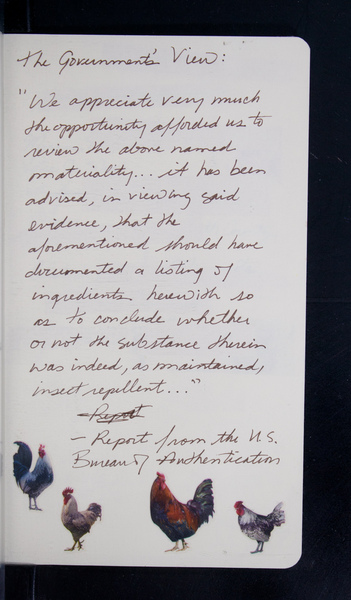 The Government's View:
"We appreciate very much
the opportunity afforded us to
review the above named
materiality... it has been
advised, in viewing said
evidence, that the
aforementioned should have
documented a listing of
ingredients herewith so
as to conclude whether
or not the substance therein
was indeed, as maintained,
insect repellent..."
Report
- Report from the U.S.
Bureau of Authentication